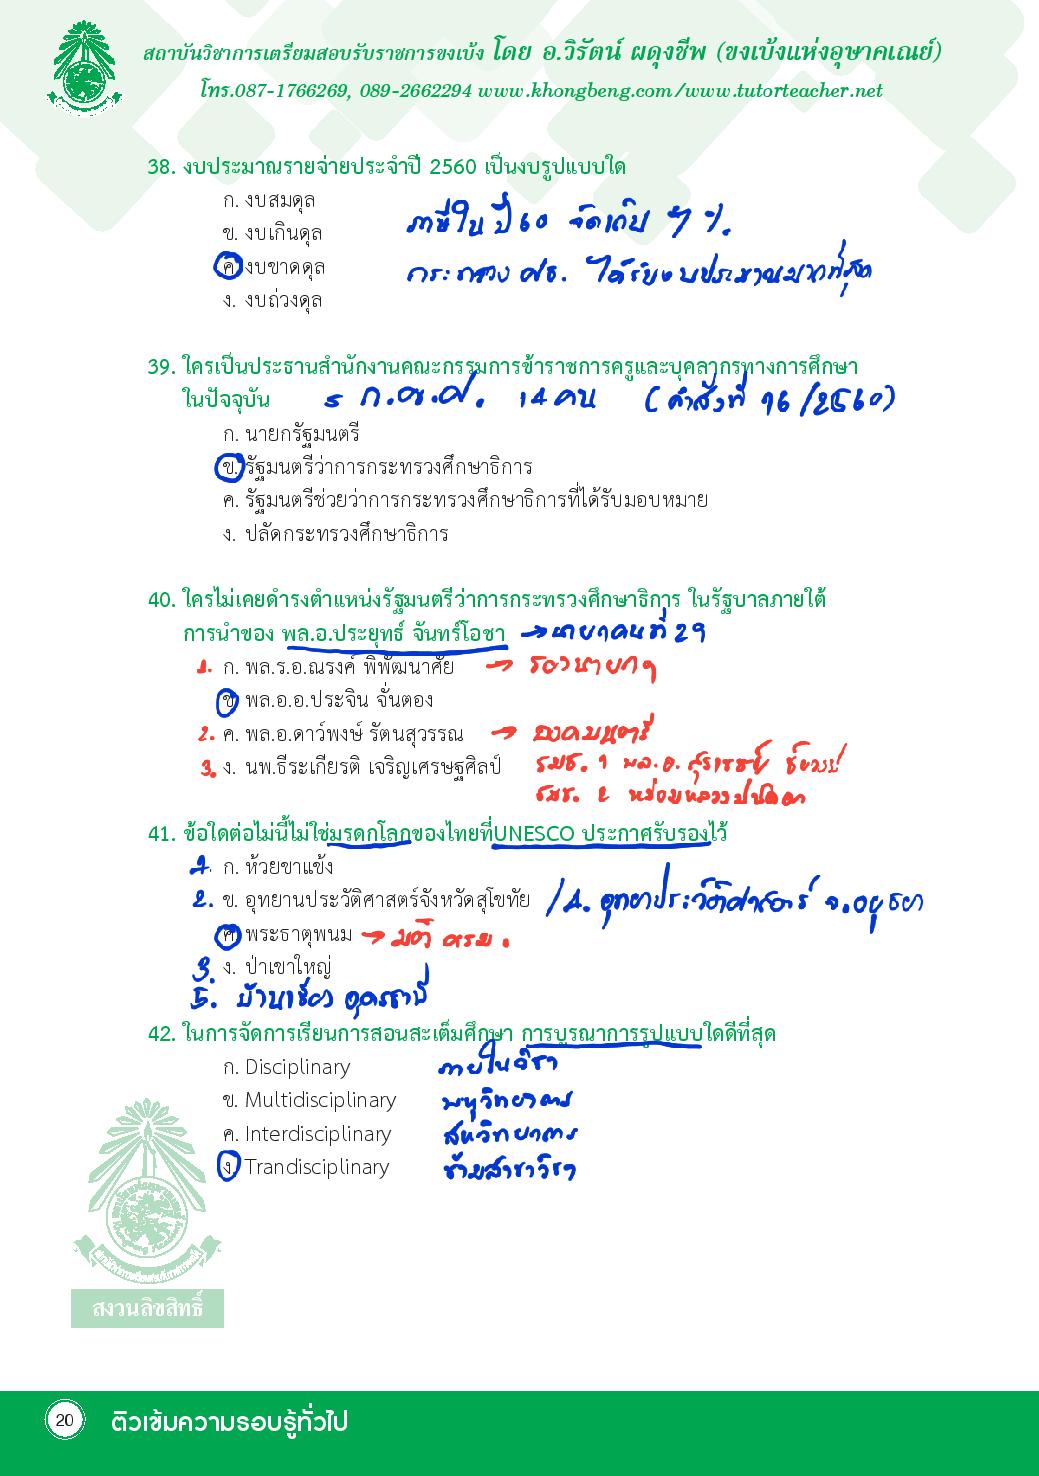 สถาบันวิชาการเตรียมสอบรับราชการขงเบ้ง โดย อ.วิรัตน์ ผดุงชีพ (ขงเบ้งแห่งอุษาคเณย์)
โทร.087-1766269, 089-2662294 www.khongbeng.com/www.tutorteacher.net
38. งบประมาณรายจ่ายประจำปี 2560 เป็นงบรูปแบบใด
ก. งบสมดุล
ข. งบเกินดุล
ภาษีใน ปี 60 จัดเก็บ 7 %.
ค. งบขาดดุล
กระทรวง ศธ. ได้รับงบประมาณมากที่สุด
ง. งบถ่วงดุล
39. ใครเป็นประธานสำนักงานคณะกรรมการข้าราชการครูและบุคลากรทางการศึกษา
ในปัจจุบัน ก.ค.ศ. 14 คน (คำสั่งที่ 16/2560)
ก. นายกรัฐมนตรี
ข. รัฐมนตรีว่าการกระทรวงศึกษาธิการ
ค. รัฐมนตรีช่วยว่าการกระทรวงศึกษาธิการที่ได้รับมอบหมาย
ง. ปลัดกระทรวงศึกษาธิการ
40. ใครไม่เคยดำรงตำแหน่งรัฐมนตรีว่าการกระทรวงศึกษาธิการ ในรัฐบาลภายใต้
การนำของ พล.อ.ประยุทธ์ จันทร์โอชา → นายกคนที่ 29
1. ก. พล.ร.อ.ณรงค์ พิพัฒนาศัย → รองนายกฯ
ข. พล.อ.อ.ประจิน จั่นตอง
2. ค. พล.อ.ดาว์พงษ์ รัตนสุวรรณ → องคมนตรี
3. ง. นพ.ธีระเกียรติ เจริญเศรษฐศิลป์ รมช. 1 พล.อ.สุรเชษฐ์ ชัยวงศ์
รมช. 2 หม่อมหลวงปนัดดา
41. ข้อใดต่อไม่นี้ไม่ใช่มรดกโลกของไทยที่UNESCO ประกาศรับรองไว้
1. ก. ห้วยขาแข้ง
2. ข. อุทยานประวัติศาสตร์จังหวัดสุโขทัย /4. อุทยานประวัติศาสตร์ จ.อยุธยา
ค. พระธาตุพนม → มติ ครม.
3. ง. ป่าเขาใหญ่
5. บ้านเชียง อุดรธานี
42. ในการจัดการเรียนการสอนสะเต็มศึกษา การบูรณาการรูปแบบใดดีที่สุด
ก. Disciplinary ภายในวิชา
ข. Multidisciplinary พหุวิทยาการ
ค. Interdisciplinary สหวิทยาการ
ง. Trandisciplinary ข้ามสาขาวิชา
สงวนลิขสิทธิ์
20 ติวเข้มความรอบรู้ทั่วไป